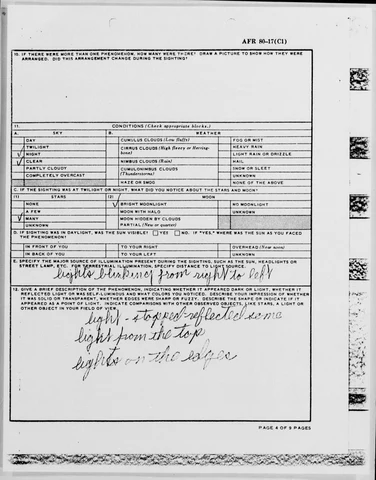 AFR 80-17(C1)
10. IF THERE WERE MORE THAN ONE PHENOMENON, HOW MANY WERE THERE? DRAW A PICTURE TO SHOW HOW THEY WERE
ARRANGED. DID THIS ARRANGEMENT CHANGE DURING THE SIGHTING?
11. CONDITIONS (Check appropriate blocks.)
A. SKY B. WEATHER
DAY CUMULUS CLOUDS (Low fluffy) FOG OR MIST
TWILIGHT CIRRUS CLOUDS (High fleecy or Herring- HEAVY RAIN
✓ NIGHT bone) LIGHT RAIN OR DRIZZLE
✓ CLEAR NIMBUS CLOUDS (Rain) HAIL
PARTLY CLOUDY CUMULONIMBUS CLOUDS SNOW OR SLEET
COMPLETELY OVERCAST (Thunderstorms) UNKNOWN
HAZE OR SMOG NONE OF THE ABOVE
C. IF THE SIGHTING WAS AT TWILIGHT OR NIGHT, WHAT DID YOU NOTICE ABOUT THE STARS AND MOON?
(1) STARS (2) MOON
NONE ✓ BRIGHT MOONLIGHT NO MOONLIGHT
A FEW MOON WITH HALO UNKNOWN
✓ MANY MOON HIDDEN BY CLOUDS
UNKNOWN PARTIAL (New or quarter)
D. IF SIGHTING WAS IN DAYLIGHT, WAS THE SUN VISIBLE? YES NO IF "YES," WHERE WAS THE SUN AS YOU FACED
THE PHENOMENON?
IN FRONT OF YOU TO YOUR RIGHT OVERHEAD (Near noon)
IN BACK OF YOU TO YOUR LEFT UNKNOWN
E. SPECIFY THE MAJOR SOURCE OF ILLUMINATION PRESENT DURING THE SIGHTING, SUCH AS THE SUN, HEADLIGHTS OR
STREET LAMP, ETC. FOR TERRESTRIAL ILLUMINATION, SPECIFY DISTANCE TO LIGHT SOURCE.
lights blinking from right to left
12. GIVE A BRIEF DESCRIPTION OF THE PHENOMENON, INDICATING WHETHER IT APPEARED DARK OR LIGHT, WHETHER
IT REFLECTED LIGHT OR WAS SELF-LUMINOUS AND WHAT COLORS YOU NOTICED. DESCRIBE YOUR IMPRESSION OF WHETHER
IT WAS SOLID OR TRANSPARENT, WHETHER EDGES WERE SHARP OR FUZZY. DESCRIBE THE SHAPE OR INDICATE IF IT
APPEARED AS A POINT OF LIGHT. INDICATE COMPARISONS WITH OTHER OBSERVED OBJECTS, LIKE STARS, A LIGHT OR
OTHER OBJECT IN YOUR FIELD OF VIEW.
light - stopped reflected some
light from the top
lights on the edges
PAGE 4 OF 5 PAGES